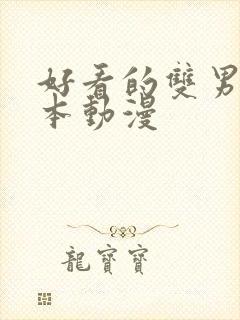 好看的雙男
本動漫
龍寶寶